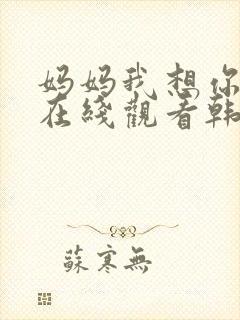 妈妈我想你
在线觀看韩
蘇寒無